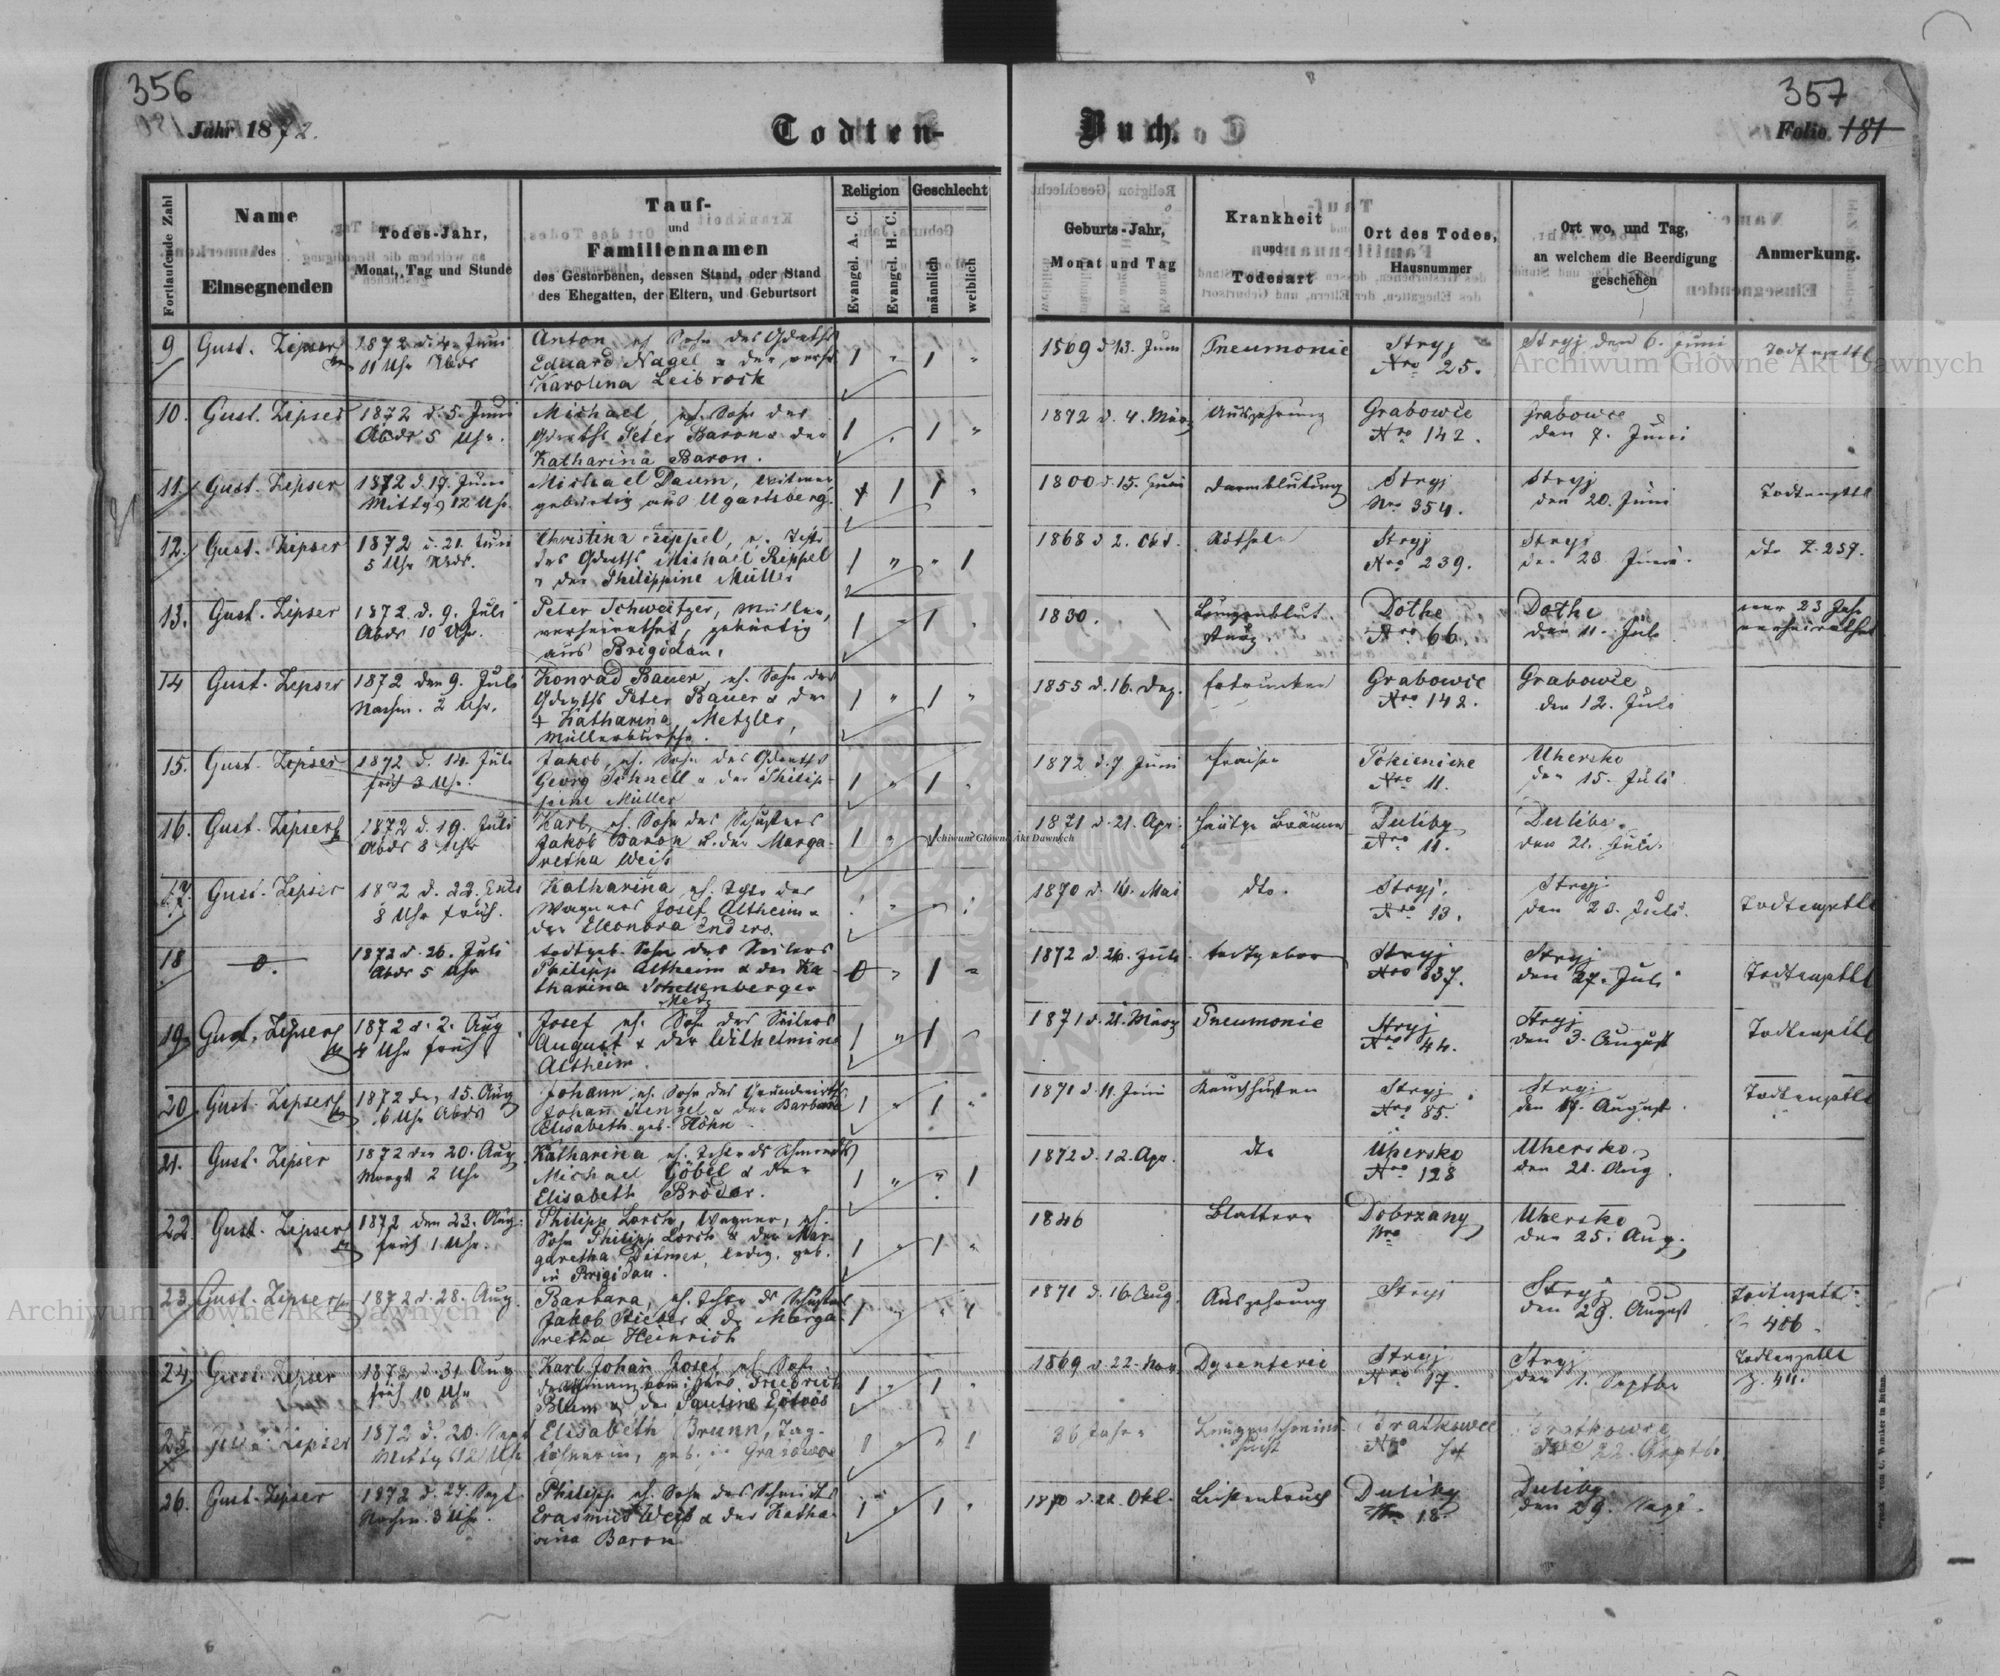 356
357
Jahr 1872.
Todten-
Buch.
Folio 181
Fortlaufende Zahl
Name
des
Einsegnenden
Todes-Jahr,
Monat, Tag und Stunde
Tauf-
und
Familiennamen
des Gestorbenen, dessen Stand, oder Stand
des Ehegatten, der Eltern, und Geburtsort
Religion
Evangel. A. C.
Evangel. H. C.
Geschlecht
männlich
weiblich
Geburts-Jahr,
Monat und Tag
Krankheit
und
Todesart
Ort des Todes,
Hausnummer
Ort wo, und Tag,
an welchem die Beerdigung
geschehen
Anmerkung.
9 Gust. Zipser 1872 d. 4. Juni Anton eh. Sohn des 1 " 1 " 1569 d 13. Juni Pneumonie Stryj Stryj den 6. Juni Todtenzettl
11 Uhr Abds Eduard Nagel u der Nro 25.
Karolina Leibrock
10. Gust. Zipser 1872 d. 5. Juni Michael eh. Sohn des 1 " 1 " 1872 d. 4. März Auszehrung Grabowce Grabowce
Abds 5 Uhr. Peter Baron u der Nro 142. den 7. Juni
Katharina Baron.
11 Gust. Zipser 1872 d. 17. Juni Michael Daum, Witwer 1 1 1800 d. 15. Juni Darmblutung Stryj Stryj Todtenzettl
Mittgs 12 Uhr gebürtig aus Ugartsberg. Nro 354. den 20. Juni
12. Gust. Zipser 1872 d. 21. Juni Christina Rippel, e. Tchtr 1 " " 1 1868 d 2. Okt. Stryj Stryj dto Z. 259.
5 Uhr Abds. des Michael Rippel Nro 239. den 23 Juni.
u der Philippine Müller
13. Gust. Zipser 1872. d. 9. Juli Peter Schweitzer, Müller, 1 " 1 " 1830. Lungenblut Dolhe Dolhe war 23 Jahr
Abds 10 Uhr. verheirathet, gebürtig sturz. Nro 66. den 11. Juli verheirathet
aus Brigidau.
14 Gust. Zipser 1872 den 9. Juli Konrad Bauer, eh. Sohn des 1 " 1 " 1855 d. 16. Dez. ertrunken Grabowce Grabowce
Nachm. 2 Uhr. Peter Bauer u der Nro 142. den 12. Juli
+ Katharina Metzler,
Müllerbursche.
15. Gust. Zipser 1872 d. 14. Juli Jakob, eh. Sohn des 1 " 1 " 1872 d. 7 Juni Fraisen Uhersko
früh 3 Uhr. Georg Schnell u der Philip- Nro 11. den 15. Juli
pine Müller
16. Gust. Zipser 1872 d. 19. Juli Karl, eh. Sohn des Schusters 1 " 1871 d. 21. Apr. häutge Bräune Duliby Duliby
Abds 8 Uhr Jakob Baron u. der Marga- Nro 11. den 21. Juli.
retha Weiß
17. Gust. Zipser 1872 d. 22. Juli Katharina eh. Tchtr des 1870 d. 14. Mai dto. Stryj. Stryj Todtenzettl
8 Uhr früh. Wagners Josef Altheim u Nro 13. den 23. Juli.
der Eleonora Enders
18 0. 1872 d. 26. Juli todtgeb. Sohn des Seilers 0 " 1 " 1872 d. 26. Juli todtgebor Stryj Stryj Todtenzettl
Abds 5 Uhr Philipp Altheim u der Ka- Nro 637. den 27. Juli
tharina Schellenberger
Metz
19 Gust. Zipser 1872 d. 2. Aug Josef eh. Sohn des Seilers 1 " 1 " 1871 d. 21. März Pneumonie Stryj Stryj Todtenzettl
4 Uhr früh August u der Wilhelmine Nro 44. den 3. August
Altheim.
20 Gust. Zipser 1872 den 15. Aug Johann eh. Sohn des Grundwirths 1 " 1 " 1871 d. 11. Juni Keuchhusten Stryj Stryj Todtenzettl
6 Uhr Abds Johann Stengel u der Barbara Nro 85. den 17. August.
Elisabeth geb. Höhn
21. Gust. Zipser 1872 den 20. Aug. Katharina eh. Tchtr ds Schmieds 1 " " 1 1872 d. 12. Apr. dto Uhersko Uhersko
Morgs 2 Uhr Michael Göbel u der Nro 128 den 21. Aug.
Elisabeth Bröder.
22. Gust. Zipser 1872 den 23. Aug. Philipp Lorch, Wagner, eh. 1 " 1 " 1846 Blattern Dobrzany Uhersko
früh 1 Uhr. Sohn Philipp Lorch u der Mar- Nro den 25. Aug.
garetha Ditmer, ledig, geb.
in Brigidau.
23 Gust. Zipser 1872 d. 28. Aug. Barbara, eh. Tchtr ds Schusters 1 " " 1 1871 d. 16. Aug. Auszehrung Stryj Stryj Todtenzettl
Jakob Stieber u dr Marga- den 29. August 406.
retha Heinrich
24 Gust. Zipser 1872 d. 31 Aug Karl Johann Josef eh. Sohn 1 " 1 " 1869 d. 22. Nov. Dysenterie Stryj Stryj Todtenzettl
früh 10 Uhr des Friedrich Nro 17. den 1. Septbr Z. 411.
Blum u der Pauline Eötvös
25 Gust. Zipser 1872 d. 20. Sept Elisabeth Brunn, Tag- 1 " " 1 36 Jahre Bratkowce Bratkowce
Mittgs 12 Uhr löhnerin, geb. in den 22. Septbr.
26. Gust. Zipser 1872 d. 27. Sept. Philipp eh. Sohn des Schmieds 1 " 1 " 1870 d. 22. Okt. Leistenbruch Duliby Duliby
Nachm. 3 Uhr. Erasmus Weiß u der Katha- Nro 18. den 29. Sept.
rina Baron
Archiwum Główne Akt Dawnych
Archiwum Główne Akt Dawnych
Archiwum Główne Akt Dawnych